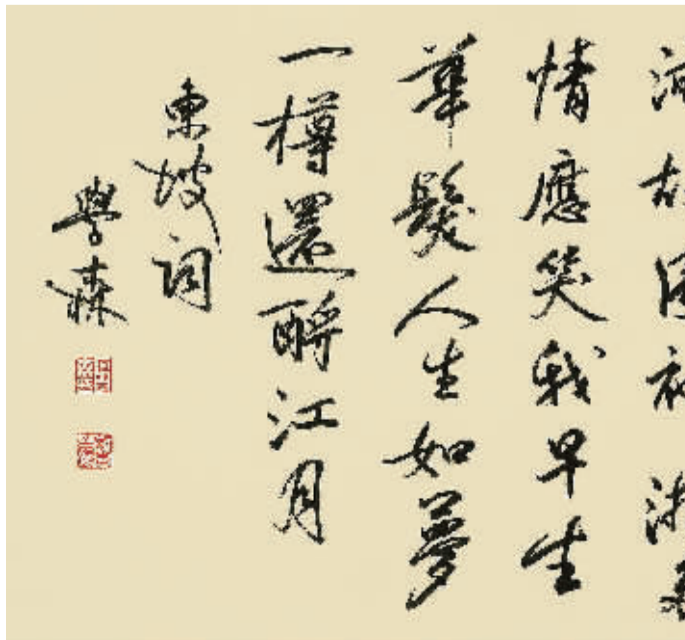 情應笑我早生
華髮人生如夢
一樽還酹江月
東坡詞
學森